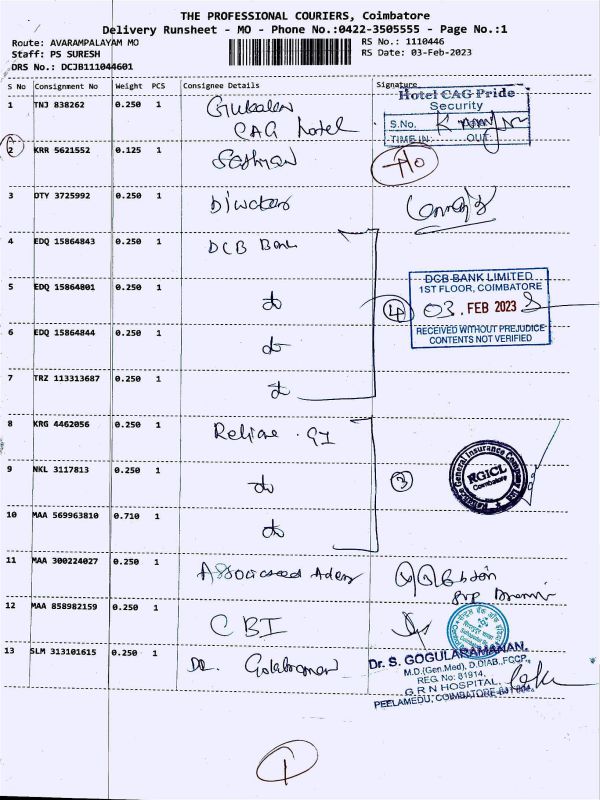 THE PROFESSIONAL COURIERS, Coimbatore
Delivery Runsheet - MO - Phone No.:0422-3505555 - Page No.:1
Route: AVARAMPALAYAM MO
RS No.: 1110446
Staff: PS SURESH
RS Date: 03-Feb-2023
DRS No.: DCJB111044601
S No Consignment No Weight PCS Consignee Details Signature
1 TNJ 838262 0.250 1
CAG hotel
Hotel CAG Pride
Security
S.No.
TIME IN: OUT:
2 KRR 5621552 0.125 1
3 DTY 3725992 0.250 1
4 EDQ 15864843 0.250 1 DCB Bank
5 EDQ 15864801 0.250 1 do
DCB BANK LIMITED
1ST FLOOR, COIMBATORE
4 03. FEB 2023
RECEIVED WITHOUT PREJUDICE
CONTENTS NOT VERIFIED
6 EDQ 15864844 0.250 1 do
7 TRZ 113313687 0.250 1 do
8 KRG 4462056 0.250 1 Reliance GI
9 NKL 3117813 0.250 1 do
3
Reliance General Insurance Company Ltd
RGICL
Coimbatore
10 MAA 569963810 0.710 1 do
11 MAA 300224027 0.250 1 Associated
12 MAA 858982159 0.250 1 CBI
13 SLM 313101615 0.250 1 DR.
Dr. S. GOGULARAMANAN.
M.D.(Gen.Med), D.DIAB.,FCCP.
REG. No: 81914,
G R N HOSPITAL,
PEELAMEDU, COIMBATORE-641 004.
1